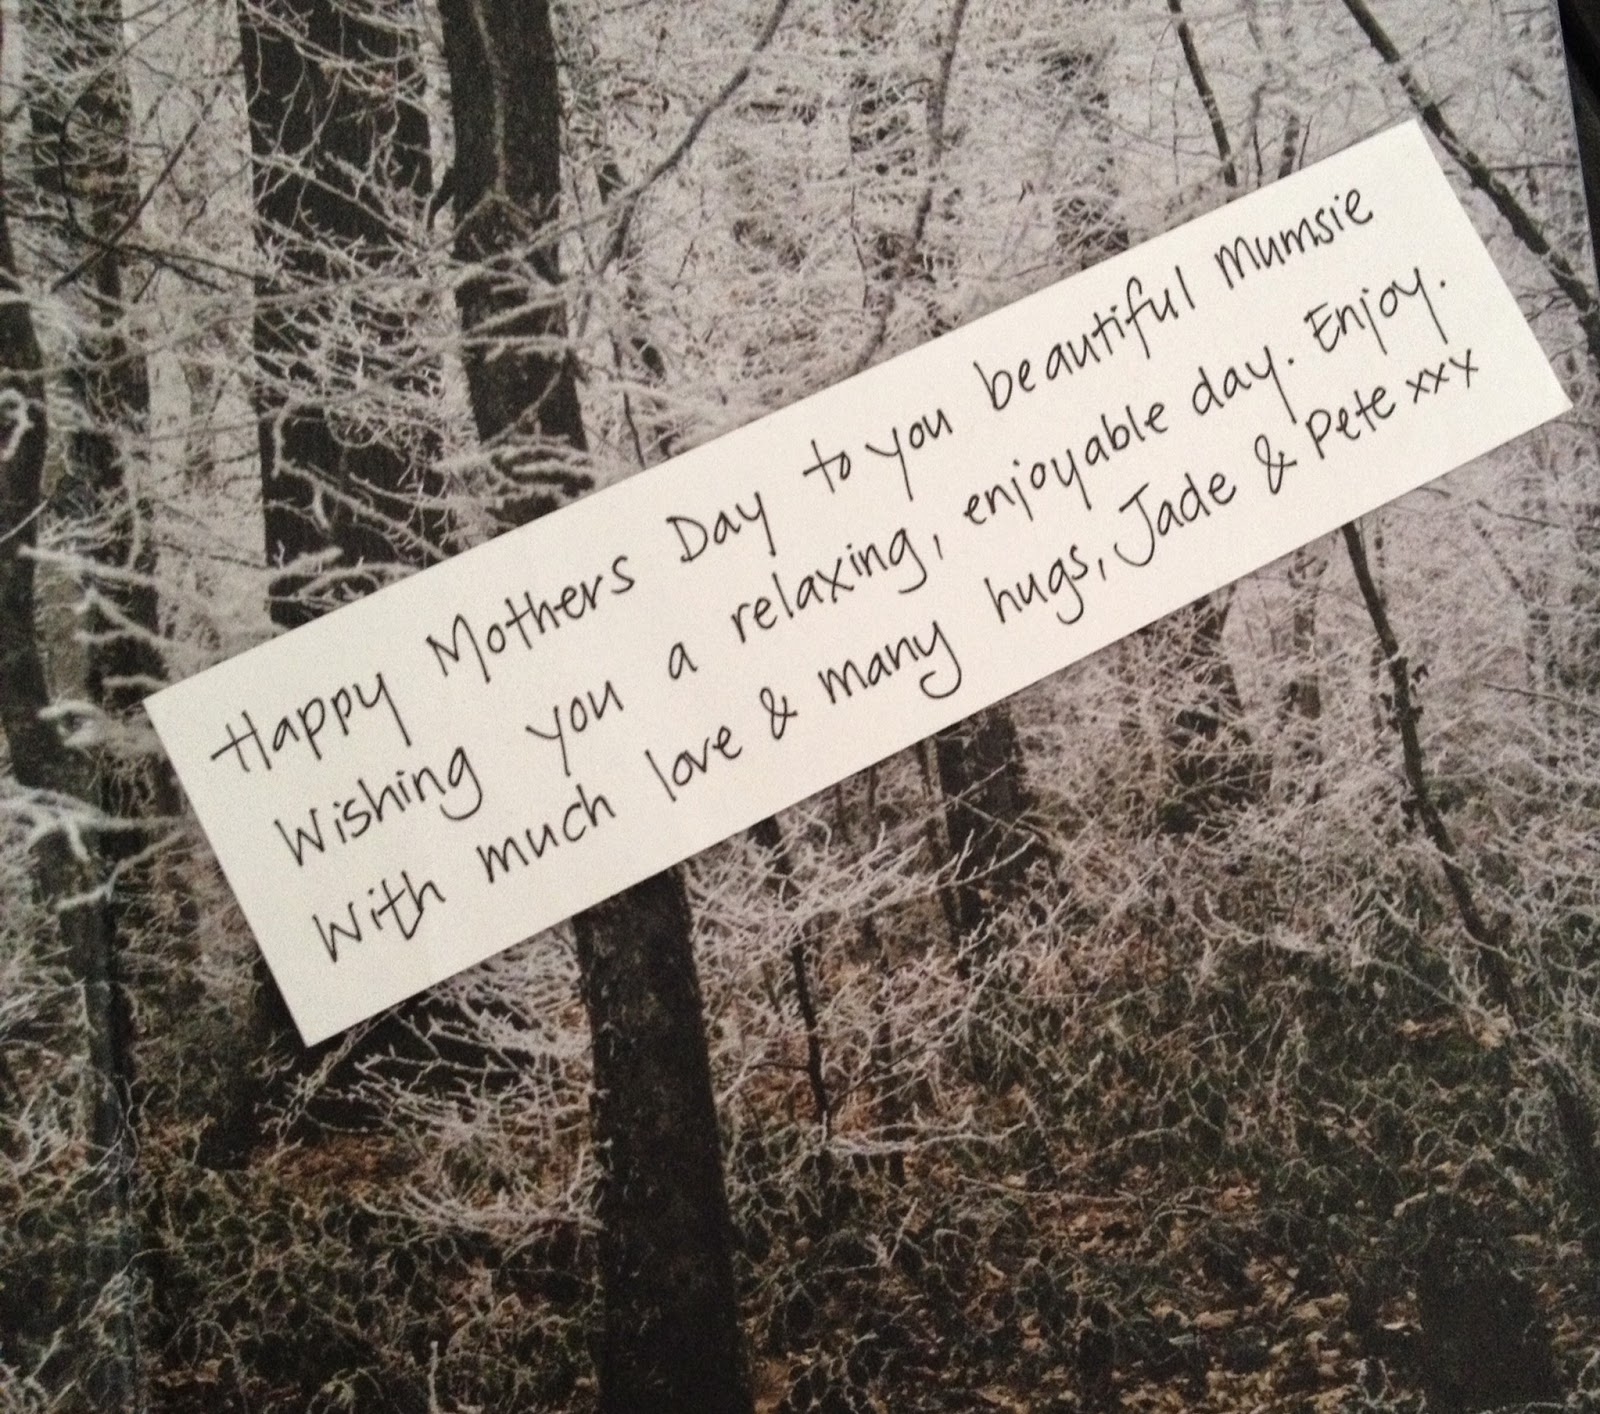 Happy Mothers Day to you beautiful Mumsie
Wishing you a relaxing, enjoyable day. Enjoy.
With much love & many hugs, Jade & Pete xxx